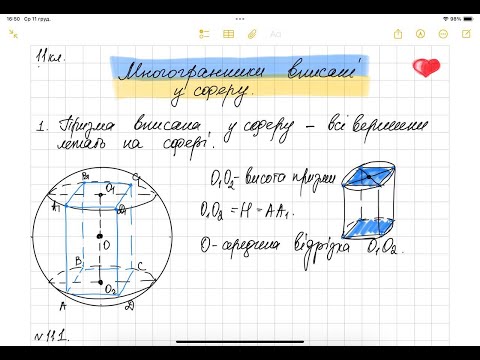 16:50 Ср 11 груд.
98%
Aa
11 кл.
Многогранники вписані
у сферу.
1. Призма вписана у сферу – всі вершини
лежать на сфері.
B1 C1
O1
A1 D1
O
B C
O2
A D
O1O2 - висота призми
O1O2 = H = AA1.
O - середина відрізка O1O2.
N 11 1.